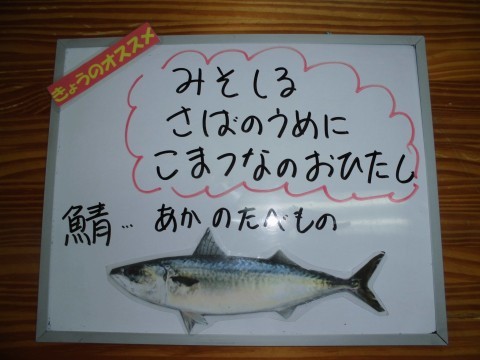 きょうのオススメ
みそしる
さばのうめに
こまつなのおひたし
鯖… あかのたべもの